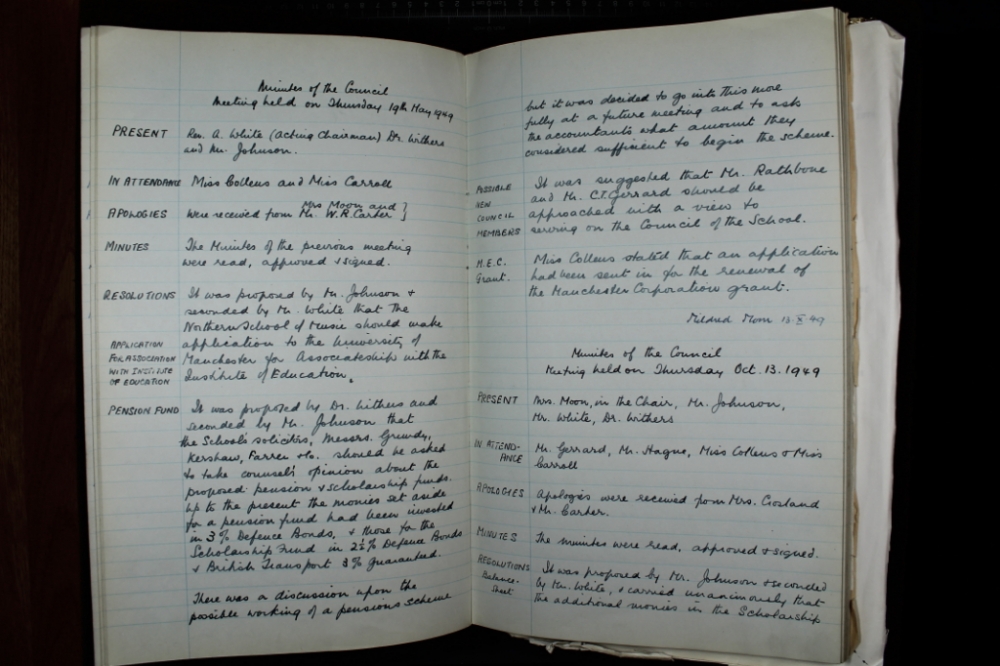 Minutes of the Council
Meeting held on Thursday 19th May 1949
PRESENT
Rev. A. White (acting Chairman) Dr. Withers
and Mr. Johnson.
IN ATTENDANCE
Miss Collens and Miss Carroll
APOLOGIES
Mrs Moon and }
were received from Mr. W.R. Carter }
MINUTES
The Minutes of the previous meeting
were read, approved & signed.
RESOLUTIONS
It was proposed by Mr. Johnson &
seconded by Mr. White that the
Northern School of Music should make
APPLICATION
FOR ASSOCIATION
WITH INSTITUTE
OF EDUCATION
application to the University of
Manchester for Associateship with the
Institute of Education.
PENSION FUND
It was proposed by Dr. Withers and
seconded by Mr. Johnson that
the School's solicitors, Messrs. Grundy,
Kershaw, Farrer & Co. should be asked
to take counsel's opinion about the
proposed pension & scholarship funds.
Up to the present the monies set aside
for a pension fund had been invested
in 3% Defence Bonds, & those for the
Scholarship Fund in 2½% Defence Bonds
& British Transport 3% guaranteed.
There was a discussion upon the
possible working of a pensions scheme
but it was decided to go into this more
fully at a future meeting and to ask
the accountants what amount they
considered sufficient to begin the scheme.
POSSIBLE
NEW
COUNCIL
MEMBERS
It was suggested that Mr. Rathbone
and Mr. C.T. Gerrard should be
approached with a view to
serving on the Council of the School.
M.E.C.
Grant.
Miss Collens stated that an application
had been sent in for the renewal of
the Manchester Corporation grant.
Mildred Moon 13.X.49
Minutes of the Council
Meeting held on Thursday Oct. 13. 1949
PRESENT
Mrs. Moon, in the Chair, Mr. Johnson,
Mr. White, Dr. Withers
IN ATTEND-
ANCE
Mr. Gerrard, Mr. Hague, Miss Collens & Miss
Carroll
APOLOGIES
Apologies were received from Mrs. Crosland
& Mr. Carter.
MINUTES
The minutes were read, approved & signed.
RESOLUTIONS
Balance-
Sheet
It was proposed by Mr. Johnson & seconded
by Mr. White, & carried unanimously that
the additional monies in the Scholarship